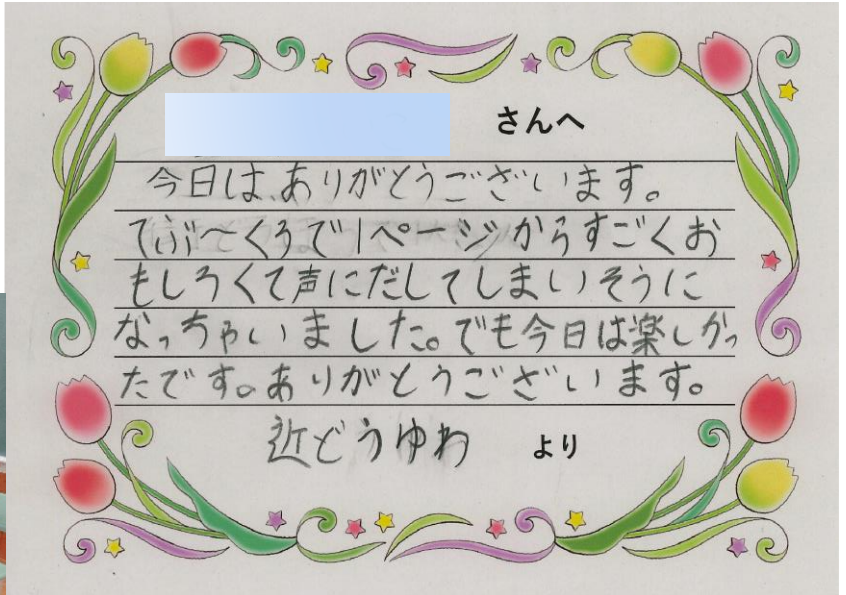 さんへ
今日は、ありがとうございます。
てぶ〜くろで1ページからすごくお
もしろくて声にだしてしまいそうに
なっちゃいました。でも今日は楽しかっ
たです。ありがとうございます。
近どうゆわ より